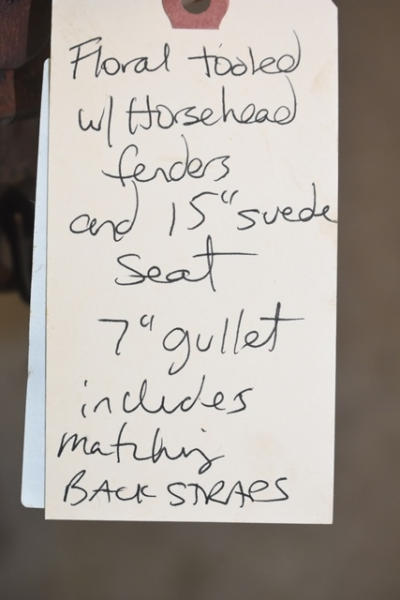 Floral tooled
w/ Horsehead
fenders
and 15" suede
Seat
7" gullet
includes
matching
BACK STRAPS